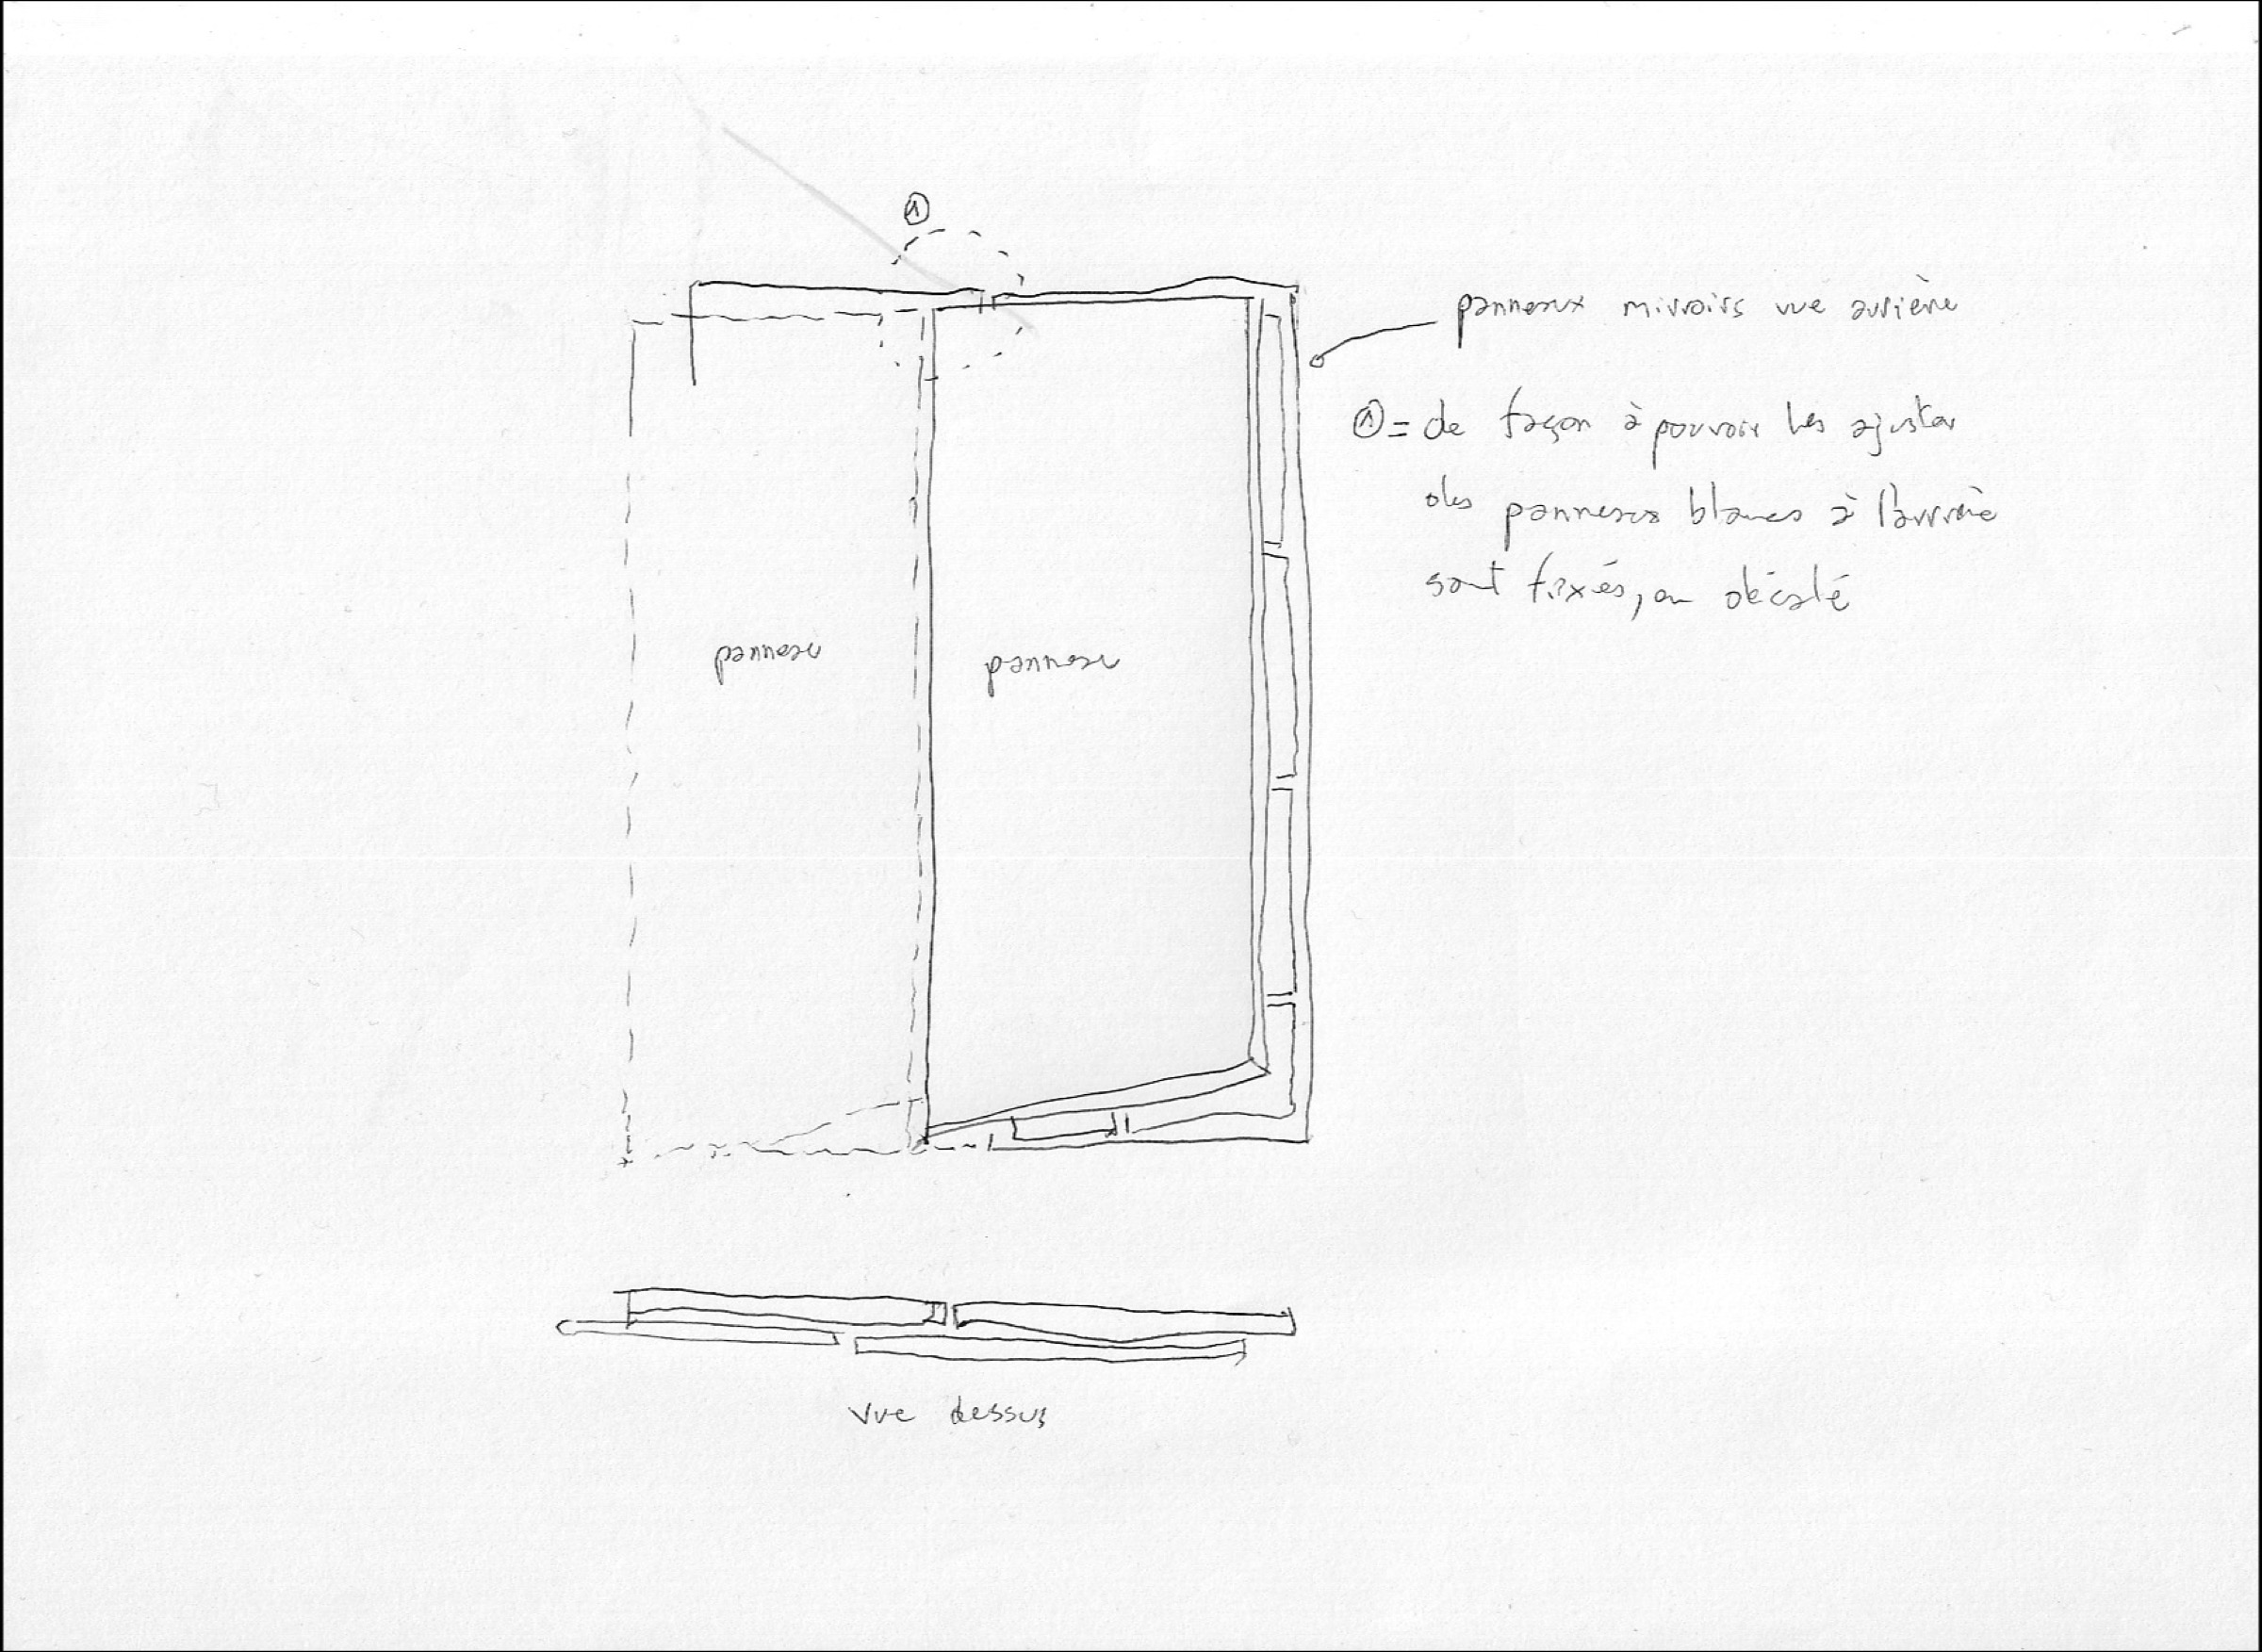 ①
panneaux mirroirs vue arrière
① = de façon à pouvoir les ajuster
des panneaux blancs à l'arrière
sont fixés, en décalé
panneau
panneau
vue dessus